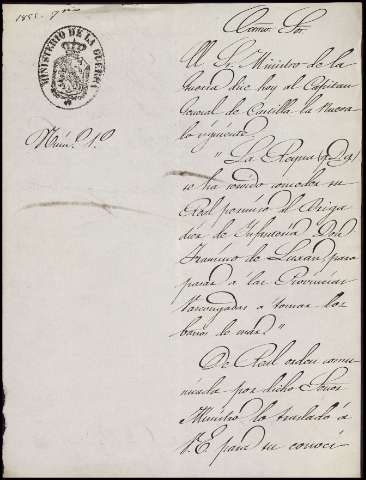 MINISTERIO DE LA GUERRA
Núm. 12
Excmo. Sor.
El Sr. Ministro de la
Guerra dice hoy al Capitan
General de Castilla la Nueva
lo siguiente.
"La Reyna (q. D. g.)
se ha servido conceder su
Real permiso al Briga
dier de Infantería Don
Francisco de Luxan para
pasar á las Provincias
Vascongadas a tomar los
baños de mar."
De Real orden comu
nicada por dicho Señor
Ministro lo traslado á
V. E. para su conoci